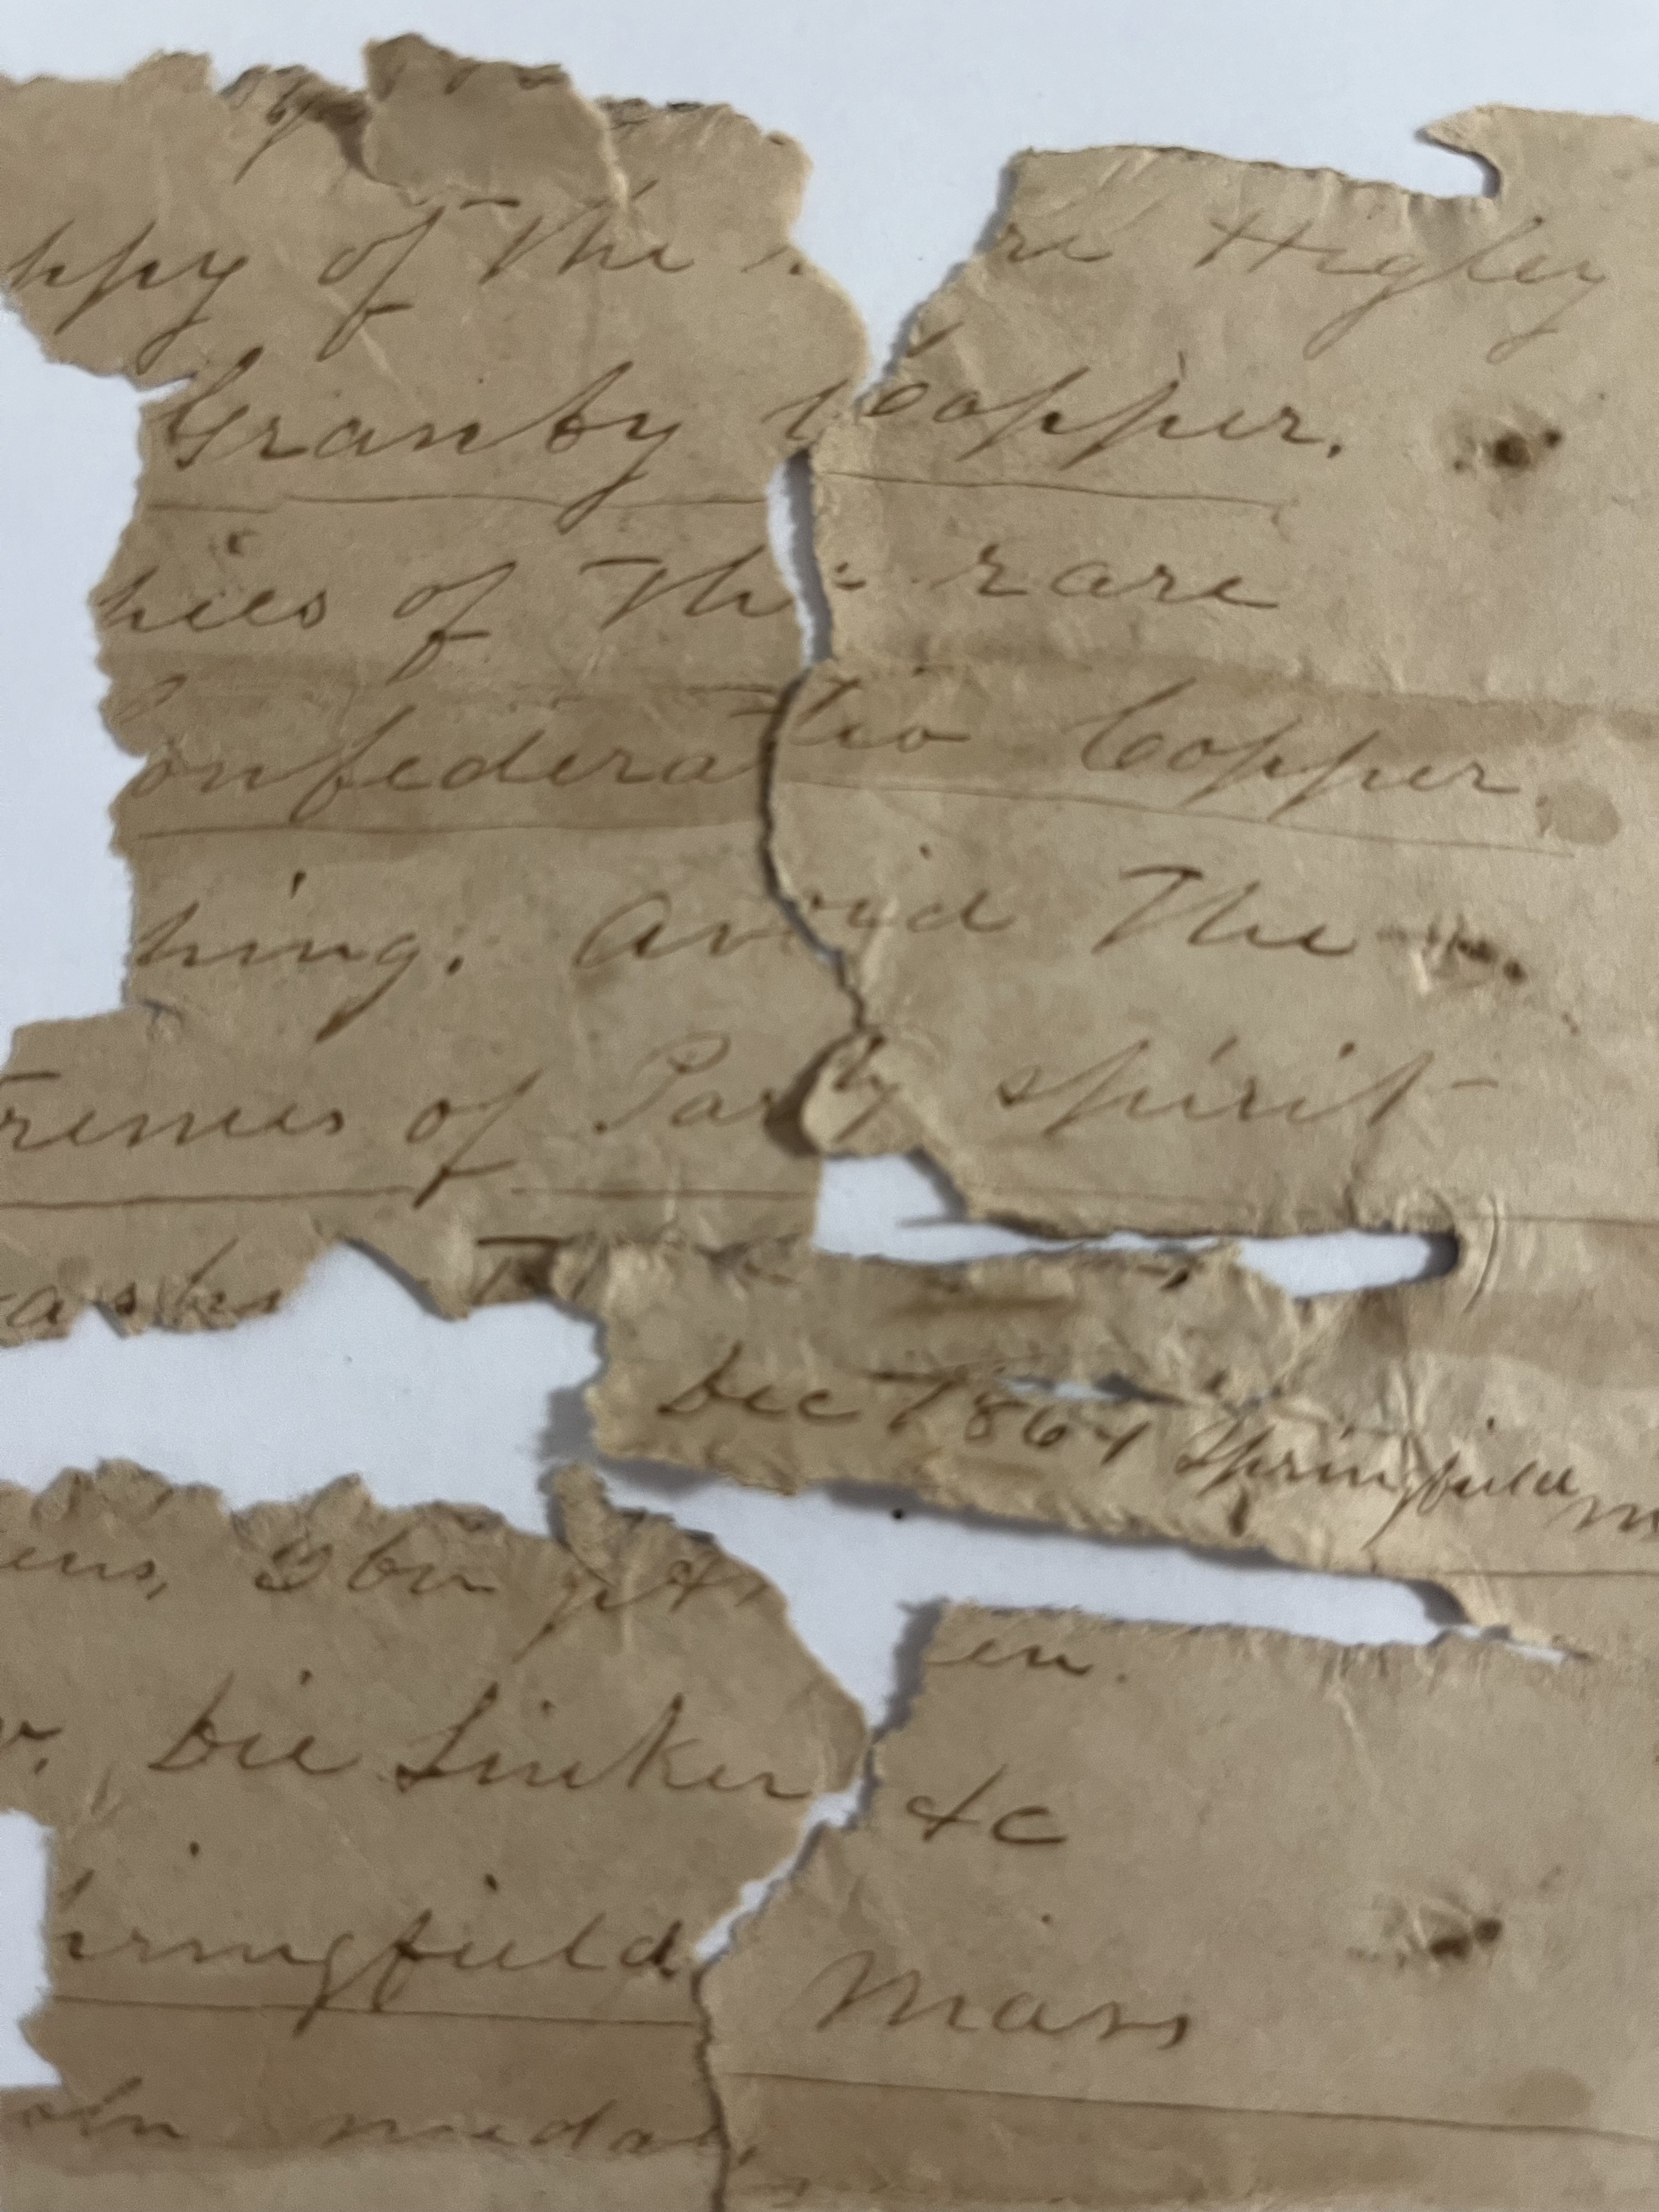 ppy of The re Higley
Granby Copper.
pies of The rare
Confederatio Copper.
hing. Avoid The
tremes of Party spirit
Dec 1864 Springfield M
ens,
en.
Die Sinker &c
pringfield Mass
oln medal